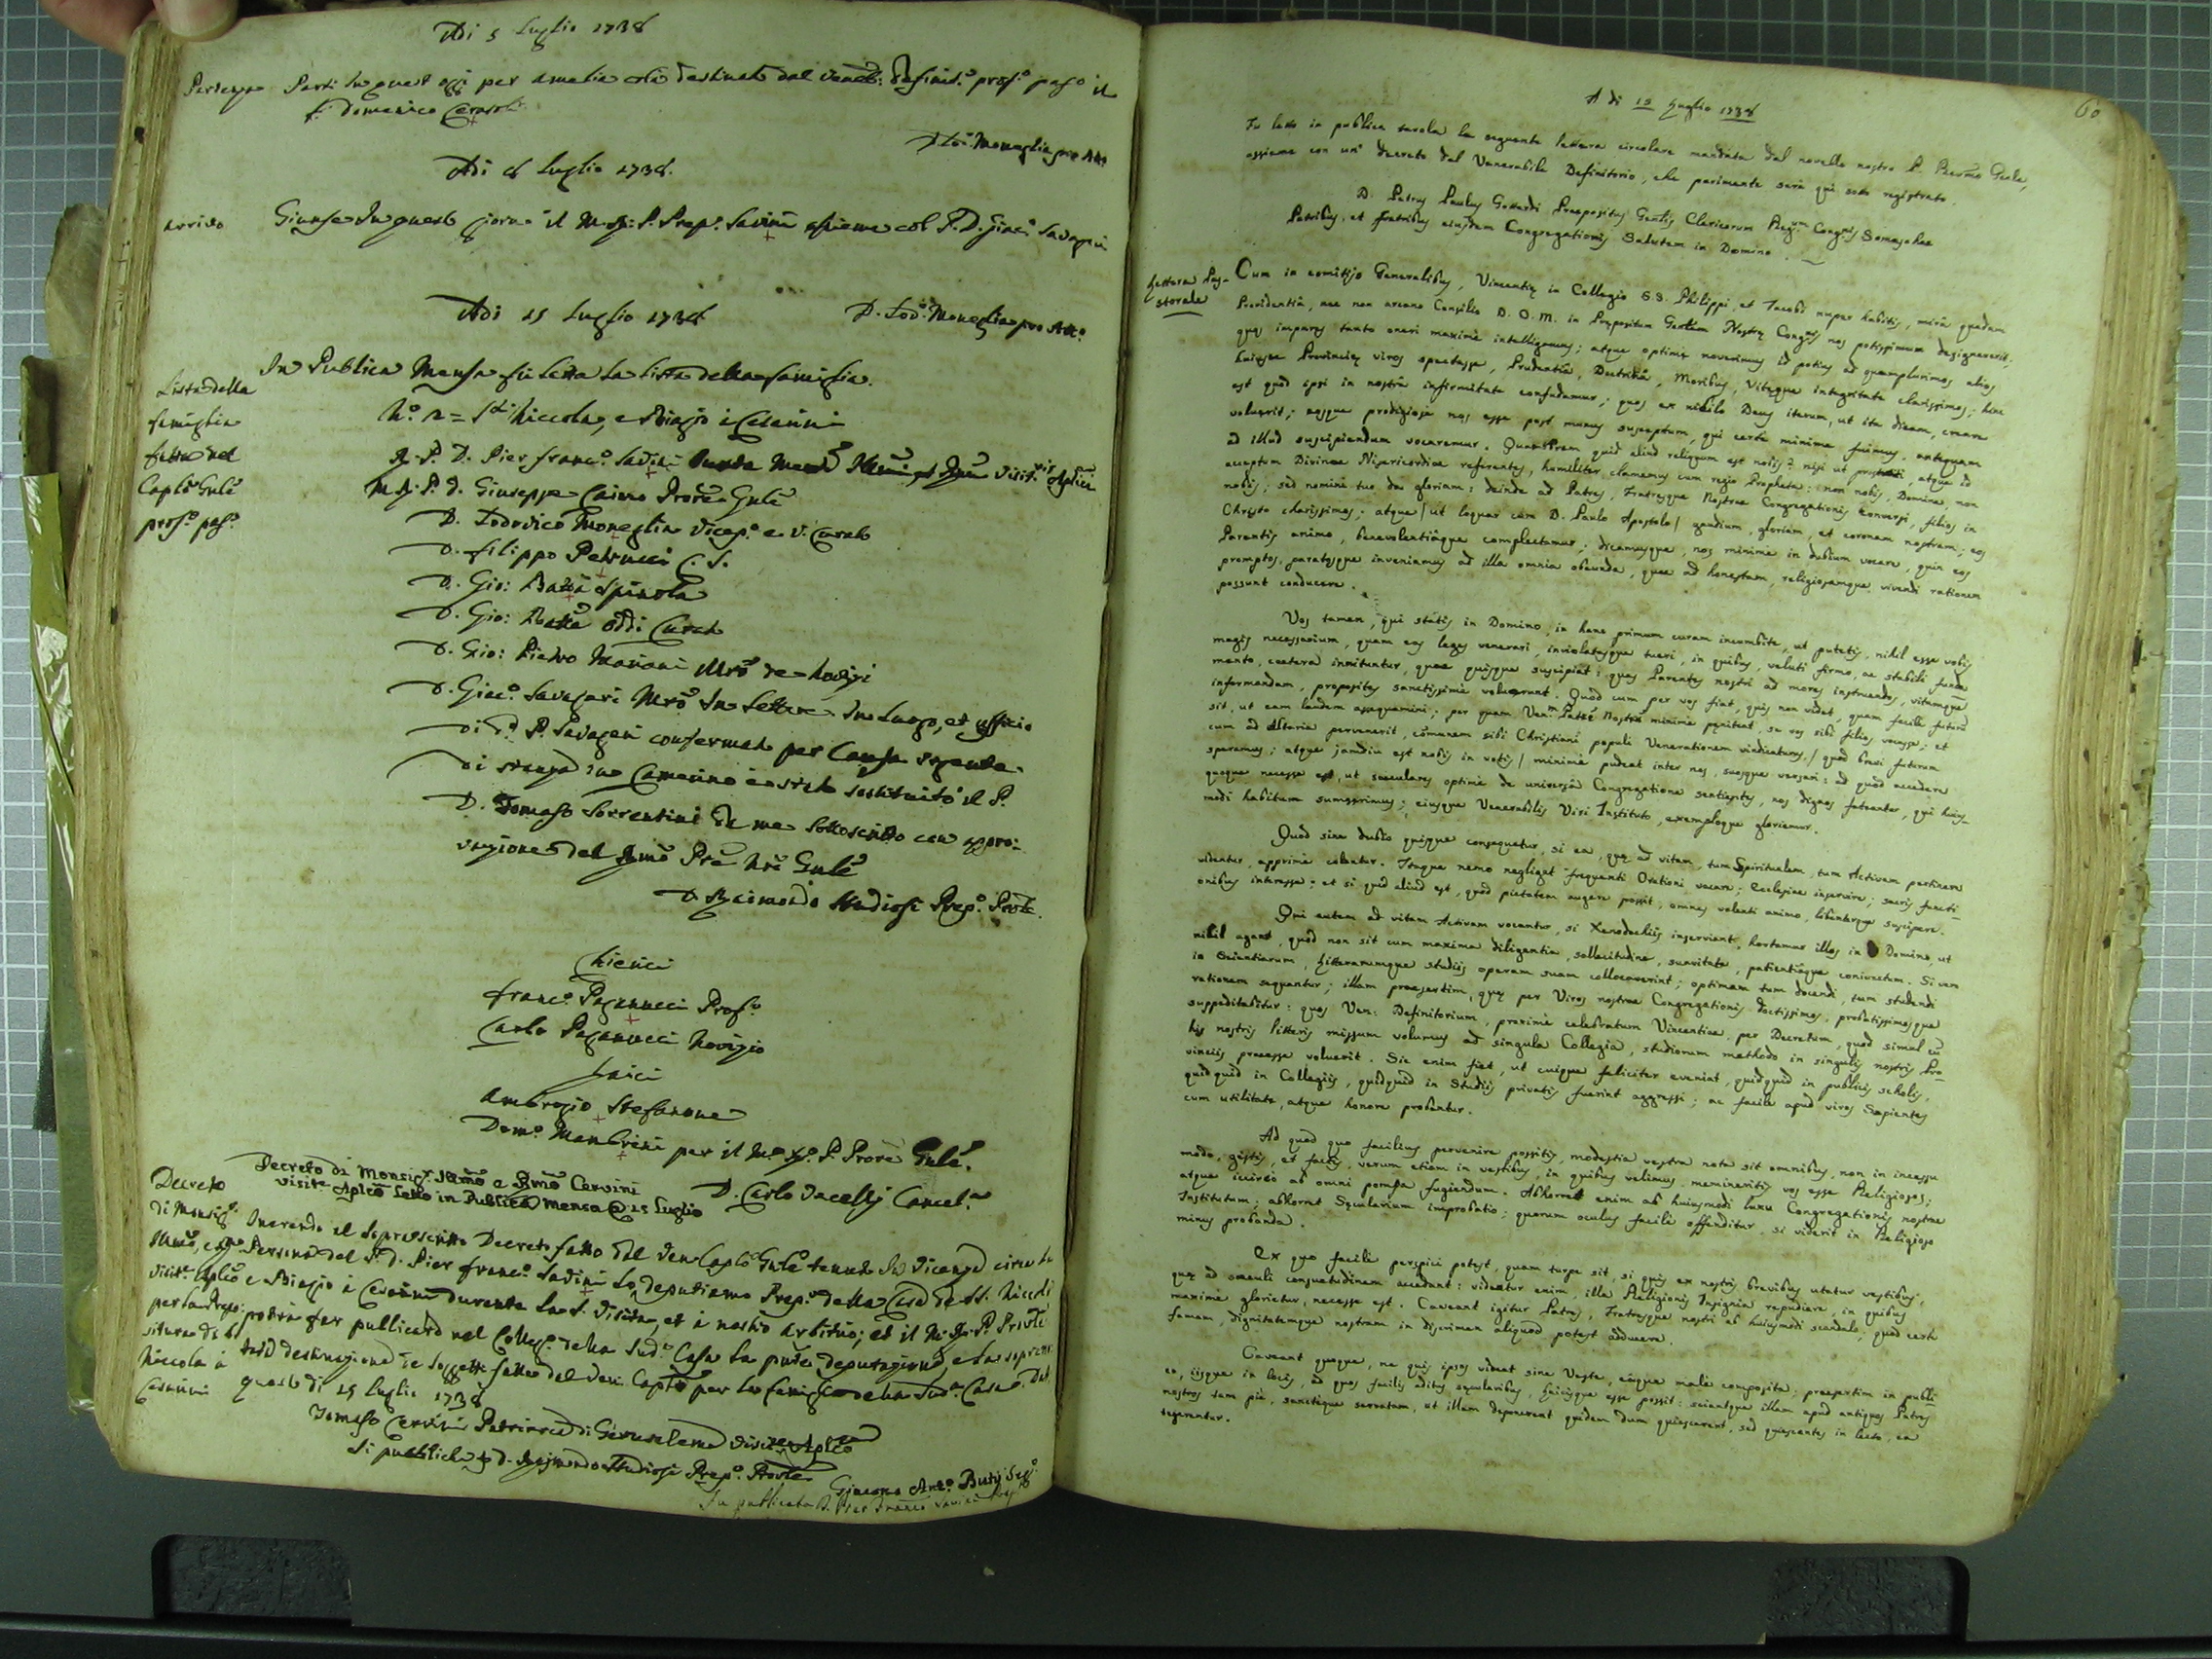 Adi 5 Luglio 1738
Partenza
Partì in quest oggi per Amelia destinato dal Vener: Definit.o pross.o pass.o il
P. Domenico Cerasoli
D. Lod: Moneglia pro Att.
Adi 8 Luglio 1738.
arrivo
Giunse in questo giorno il M. R. P. Prep.o Savini assieme col P. D. Giac.o Savageri
D. Lod.o Moneglia pro Att.o
Adi 15 Luglio 1738
In Publica Mensa fù letta la lista della famiglia.
Lista della
famiglia
fatta nel
Caplo Gnle
pros.o pas.o
N.o 2 = SS.ti Niccola, e Biagio i Cesarini
R. P. D. Pier franc.o Savini
M. R. P. D. Giuseppe Caimo Prore Gnle
D. Lodovico Moneglia Vicep.o e V. Curato
D. Filippo Petrucci C. S.
D. Gio: Batta Spinola
D. Gio: Batta Oddi Curato
D. Gio: Pietro Mariani Mro de Novizi
D. Giac.o Savageri Mro In Lettere In luogo, et ufficio
di d.o P. Savageri confermato per Causa urgente
di stanza in Camerino è stato sostituito il P.
D. Tomaso Sorrentini da me sottoscritto con appro:
vazione del Rmo Pre Nro Gnle
D. Raimondo Studiosi Prep.o Prole.
Chierici
franc.o Paganucci Prof.o
Carlo Paganucci Novizio
Laici
Ambrogio Stefanone
Dom.o Manbrini per il M.o R.o P. Prore Gnle.
D. Carlo Vacelly Cancel.re
Decreto di Monsig.r Illmo e Rmo Cervini
visit.re Aplico letto in Publica Mensa @ 15 Luglio
Decreto
di Monsig.
Illmo, e Rmo
Visit.re Aplico
per la Prepo:
situra di S.
Niccola à
Cesarini
Inerendo al soprascritto Decreto fatto dal Ven. Caplo Gnle tenuto In Vicenza circa la
Persona del P. D. Pier franc.o Savini Lo deputiamo Prep.o della Casa de SS. Niccola
e Biagio à Cesarini durante la S. Visita, et à nostro arbitrio; et il M. R. P. Prole
potrà far publicare nel Colleg.o della Sud.a Casa la pnte deputazione, e la sopra
destinazione de soggetti fatta dal Ven. Caplo per la famiglia della Sud.a Casa. Dat.
questo di 15 Luglio 1738
Tomaso Cervini Patriarca di Gerusalemme Visit.re Aplico
Si pubblichi D. Raimondo Studiosi Prep.o Prole
Giacomo Ant.o Butij Seg.o
Fu publicato D. Pier Franco Savini Prep.o
60
A di 15 Luglio 1738
Fu letto in publica tavola la seguente lettera circolare mandata dal novello nostro P. Revmo Gnle,
assieme con un decreto dal Venerabile Definitorio, che parimente sarà quì sotto registrato.
D. Petrus Paulus Gottardi Praepositus Gnlis Clericorum Reg.m Congnis Somaschae
Patribus, et Fratribus eiusdem Congregationis Salutem in Domino.
Lettera Pa-
storale
Cum in comitijs Generalibus, Vincentię in Collegio S.S. Philippi, et Jacobi nuper habitis, mirâ quadam
Providentiâ, nec non arcano Consilio D. O. M. in Prępositum Gnlem Nostrę Congnis nos potissimum designaverit;
quę impares tanto oneri maxime intelligimus; atque optimè noverimus id potius ad quamplurimos alios
huiusce Provincię viros spectasse, Prudentiâ, Doctrinâ, Moribus, Vitęque integritate clarissimos; hinc
est quòd ipsi in nostrâ infirmitate confundamur; quos ex nihilo Deus iterum, ut ita dicam, creare
voluerit; nosque prodigiosè nos esse post munus susceptum, qui certe minime fuimus, antequam
ad illud suscipiendum vocaremur. Quamobrem quid aliud reliquum est nobis? nisi ut prostrati, atque id
acceptum Divinae Misericordiae referentes, humiliter clamemus cum regio Propheta: non nobis, Domine, non
nobis; sed nomini tuo da gloriam: deinde ad Patres, Fratresque Nostrae Congregationis conversi, filios in
Christo charissimos; atque / ut loquar cum D. Paulo Apostolo / gaudium, gloriam, et coronam nostram; eos
Parentis animo, benevolentiâque complectamur; dicamusque, nos minimè in dubium vocare, quin eos
promptos, paratosque inveniamus ad illa omnia obeunda, quae ad honestam, religiosamque vivendi rationem
possunt conducere.
Vos tamen, qui statis in Domino, in hanc primum curam incumbite, ut putetis, nihil esse vobis
magis necessarium, quam eas leges venerari, inviolatasque tueri, in quibus, veluti firmo, ac stabili funda
mento, coetera innituntur, quae quisque suscipiat: quas Parentes nostri ad mores instruendos, vitamque
informandam, propositas sanctissimè voluerunt. Quod cum per vos fiat, quis non videt, quam facile futurum
sit, ut eam laudem assequamini; per quam Ven.m Patrē Nostrū minimè pęniteat, se vos sibi filios vocasse; et
cum ad Altaria pervenerit, cōmunem sibi Christiani populi Venerationem vindicaturus, / quod brevi futurum
speramus; atque jamdiu est nobis in votis / minime pudeat inter nos, suosque versari: ad quod accedere
quoque necesse est, ut soeculares optimè de universâ Congregatione sentientes, nos dignos fateantur, qui huius-
modi habitum sumpserimus; eiusque Venerabilis Viri Instituto, exemploque gloriemur.
Quod sine dubio quisque consequetur, si ea, quę ad vitam, tum Spiritualem, tum Activam pertinere
videntur, apprimè colantur. Itaque nemo negligat frequenti Orationi vacare; Ecclesiae inservire; sacris functi-
onibus interesse: et si quid aliud est, quod pietatem augere possit, omnes volenti animo, libenterque suscipere.
Qui autem ad vitam Activam vocantur, si Xenodochiis inserviant, hortamur illos in Domino, ut
nihil agant, quod non sit cum maxima diligentia, sollecitudine, suavitate, patientiâque coniunctum. Si vero
in Scientiarum, Litterarumque studiis operam suam collocaverint; optimam tum docendi, tum studendi
rationem sequantur; illam praesertim, quę per Viros nostrae Congregationis doctissimos, probatissimosque
suppeditabitur: quos Ven: Definitorium, proximè celebratum Vincentiae, per Decretum, quod simul cū
his nostris litteris missum volumus ad singula Collegia, studiorum methodo in singulis nostris Pro-
vinciis praeesse voluerit. Sic enim fiet, ut cuique feliciter eveniat, quidquid in publicis scholis,
quidquid in Collegiis, quidquid in Studiis privatis fuerint aggressi; ac facile apud viros Sapientes
cum utilitate, atque honore probentur.
Ad quod quo facilius pervenire possitis, modestia vestra nota sit omnibus, non in incessu
modo, gestis, et factis, verum etiam in vestibus, in quibus velimus, memineritis vos esse Religiosos;
atque iccircò ab omni pompa fugiendum. Abhorret enim ab huiusmodi luxu Congregationis nostrae
Institutum; abhorret Sęcularium improbatio; quorum oculus facilè offenditur, si viderit in Religioso
minus probanda.
Ex quo facilè perspici potest, quam turpe sit, si quis ex nostris brevibus utatur vestibus;
quę ad soeculi consuetudinem accedant: videatur enim, illa Religionis Insignia repudiare, in quibus
maximè glorietur, necesse est. Caveant igitur Patres, Fratresque nostri ab huiusmodi scandalo, quod certè
famam, dignitatemque nostram in discrimen aliquod potest adducere.
Caveant quoque, ne quis ipsos videat sine Veste, eâque malè composita; praesertim in publi-
co, iisque in locis, ad quos facilis aditus sęcularibus, hisque esse possit: sciantque illam apud antiquos Patres
nostros tam piè, sanctèque servatam, ut illam deponerent quidem dum quiescerent, sed quiescentes in lecto, ea
tegerentur.